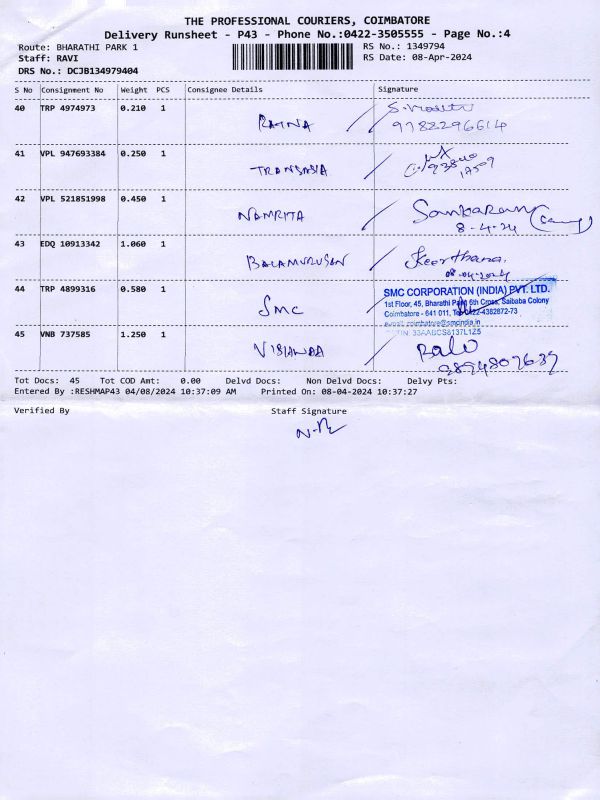 THE PROFESSIONAL COURIERS, COIMBATORE
Delivery Runsheet - P43 - Phone No.:0422-3505555 - Page No.:4
Route: BHARATHI PARK 1
RS No.: 1349794
Staff: RAVI
RS Date: 08-Apr-2024
DRS No.: DCJB134979404
S No Consignment No Weight PCS Consignee Details Signature
40 TRP 4974973 0.210 1
RATNA
9788296614
41 VPL 947693384 0.250 1
TRANSASIA
42 VPL 521851998 0.450 1
NAMRITA Sankaran
8-4-24
43 EDQ 10913342 1.060 1
BALAMURUSAN Keerthana.
08-04-2024
44 TRP 4899316 0.580 1
SMC
SMC CORPORATION (INDIA) PVT. LTD.
1st Floor, 45, Bharathi Park 6th Cross, Saibaba Colony
Coimbatore - 641 011, Tel: 0422-4362872-73
e.mail: coimbatore@smcindia.in
33AABCS8137L1Z5
45 VNB 737585 1.250 1
Balu
Tot Docs: 45 Tot COD Amt: 0.00 Delvd Docs: Non Delvd Docs: Delvy Pts:
Entered By :RESHMAP43 04/08/2024 10:37:09 AM Printed On: 08-04-2024 10:37:27
Verified By Staff Signature